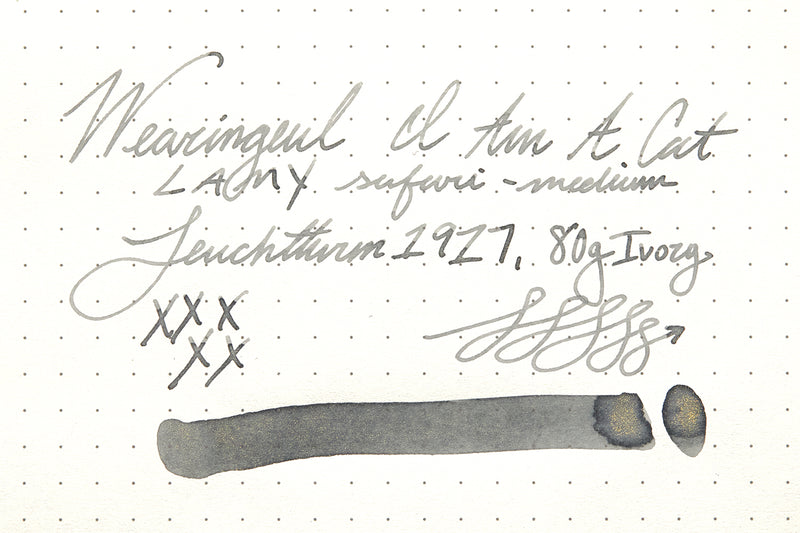 Wearingeul I Am A Cat
LAMY safari - medium
Leuchtturm 1917, 80g Ivory
XXX
XX